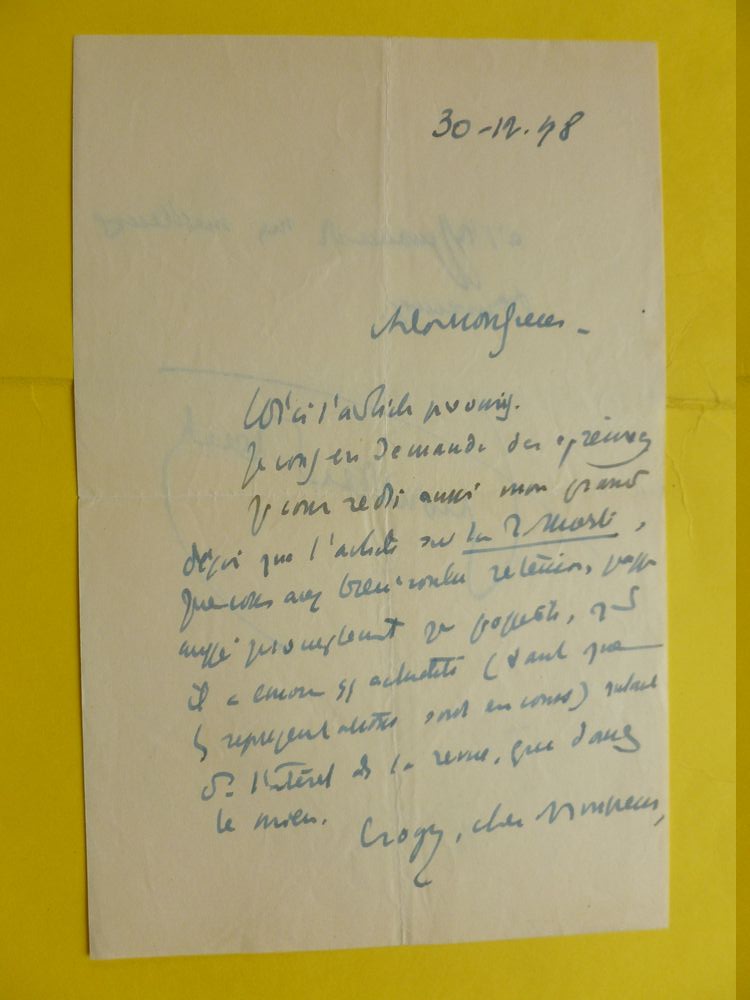 30-12-48
cher Monsieur -
Voici l'article promis.
Je vous en demande des épreuves
Je vous redis aussi mon grand
désir que l'article sur la P. Morte,
que vous avez bien voulu retenir, passe
aussi promptement que possible, qd
il a encore son actualité (tant que
les représentations sont en cours) autant
ds l'intérêt de la revue, que dans
le mien. Croyez, cher Monsieur,
à l'assurance de mes meilleurs